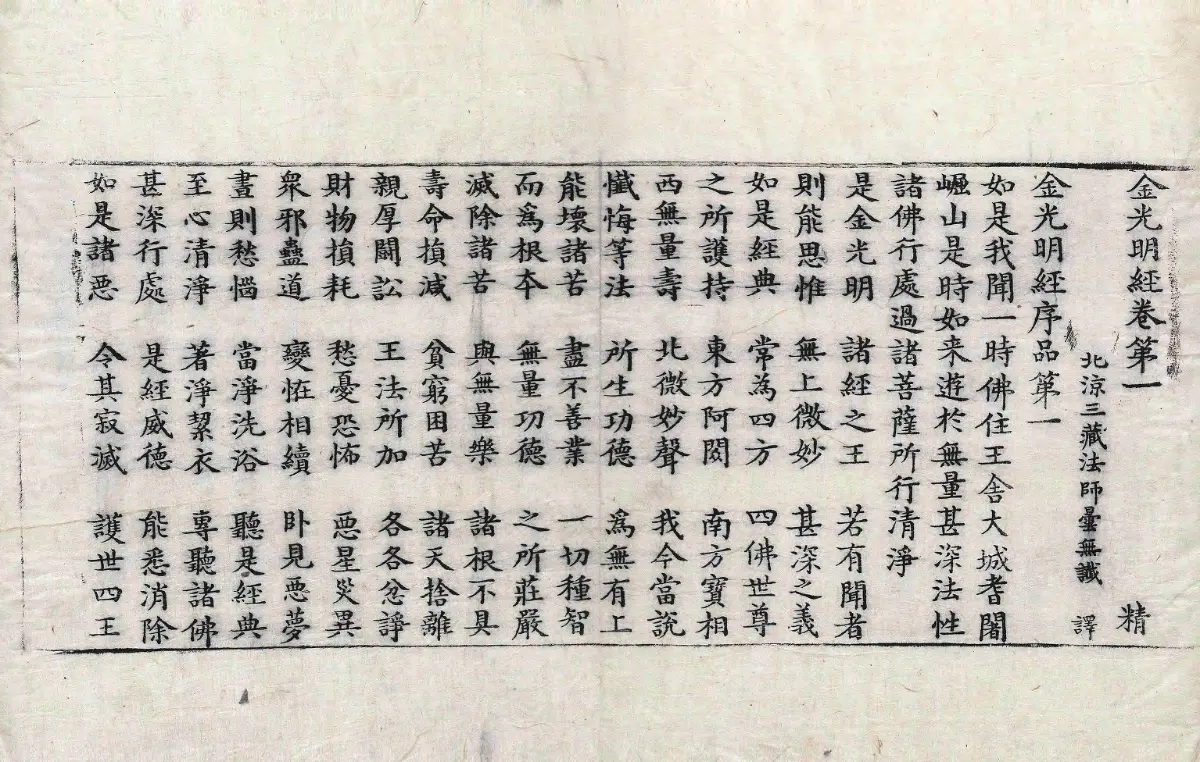 金光明經卷第一 精
北涼三藏法師曇無讖 譯
金光明經序品第一
如是我聞一時佛住王舍大城耆闍
崛山是時如来遊於無量甚深法性
諸佛行處過諸菩薩所行清淨
是金光明 諸經之王 若有聞者
則能思惟 無上微妙 甚深之義
如是經典 常為四方 四佛世尊
之所護持 東方阿閦 南方寶相
西無量壽 北微妙聲 我今當說
懺悔等法 所生功德 爲無有上
能壞諸苦 盡不善業 一切種智
而爲根夲 無量功德 之所莊嚴
滅除諸苦 與無量樂 諸根不具
壽命損減 貧窮困苦 諸天捨離
親厚鬪訟 王法所加 各各忿諍
財物損耗 愁憂恐怖 惡星災異
衆邪蠱道 變恠相續 卧見惡夢
晝則愁惱 當淨洗浴 聽是經典
至心清淨 著淨潔衣 專聽諸佛
甚深行處 是經威德 能悉消除
如是諸惡 令其寂滅 護世四王